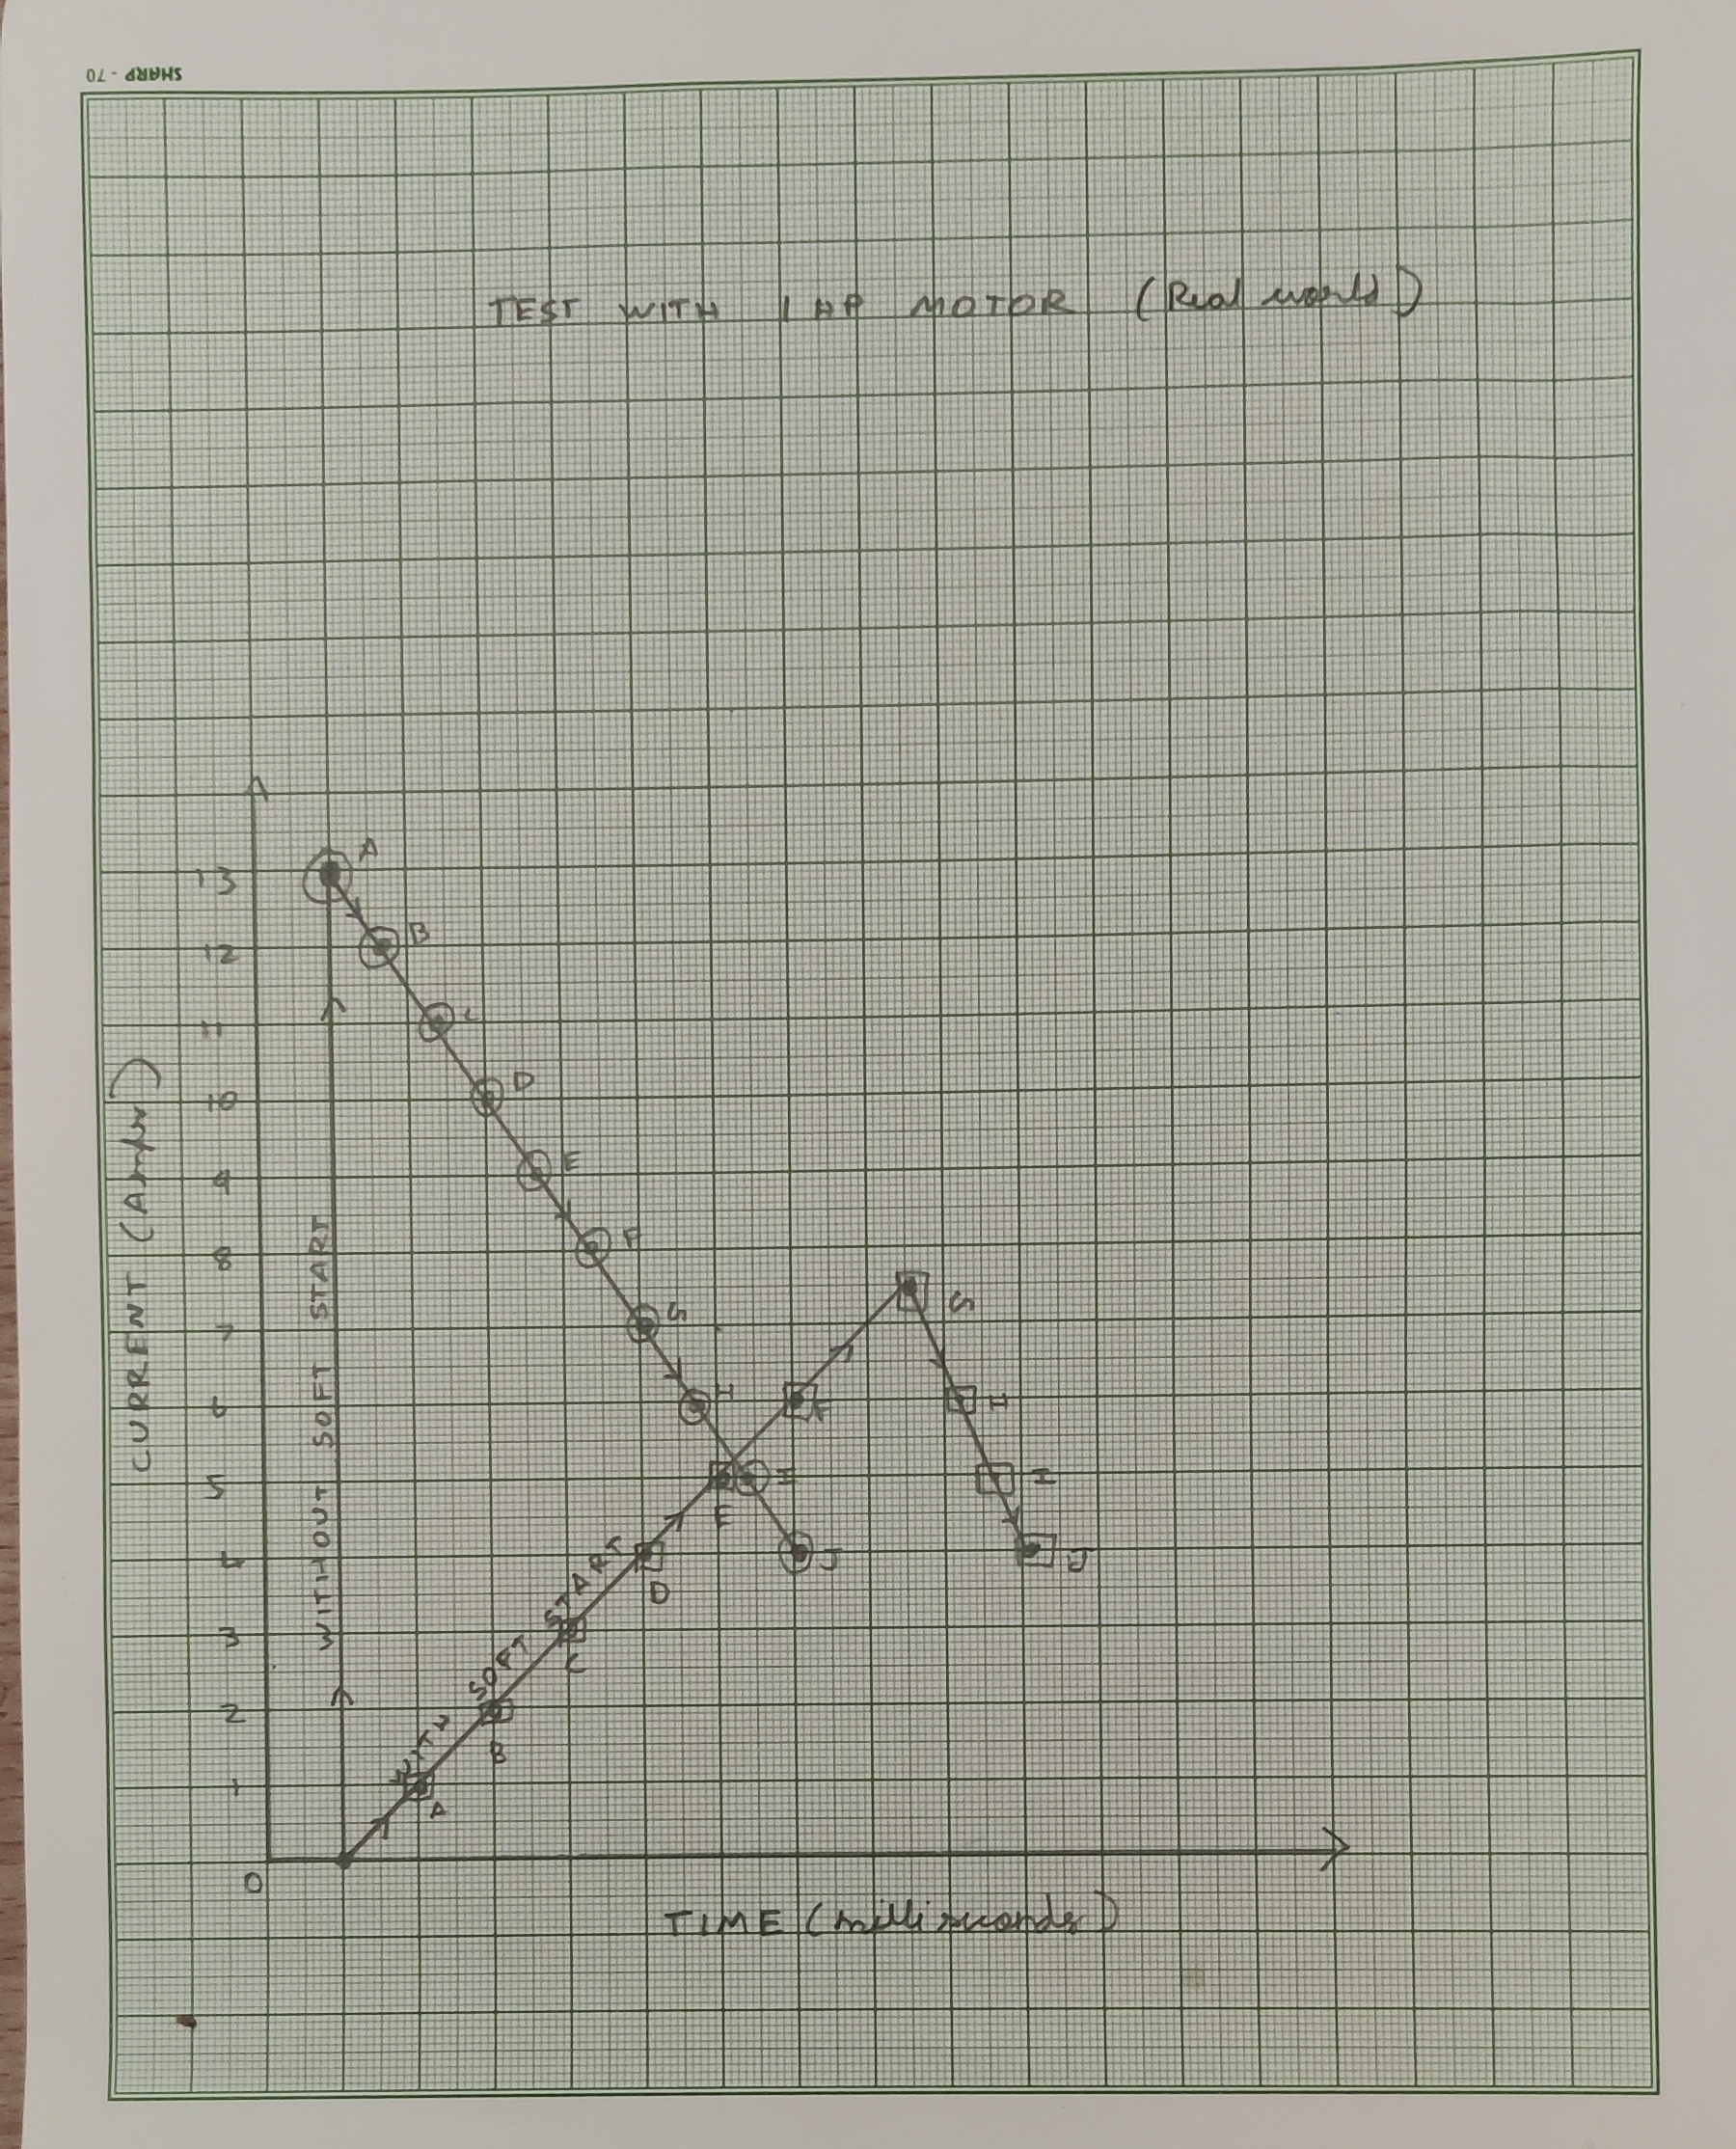 SHARP - 70
TEST WITH 1 HP MOTOR (Real world)
CURRENT (Amps)
13
12
11
10
9
8
7
6
5
4
3
2
1
0
WITHOUT SOFT START
A
B
C
D
E
F
G
H
I
J
WITH SOFT START
A
B
C
D
E
F
G
H
I
J
TIME (milliseconds)